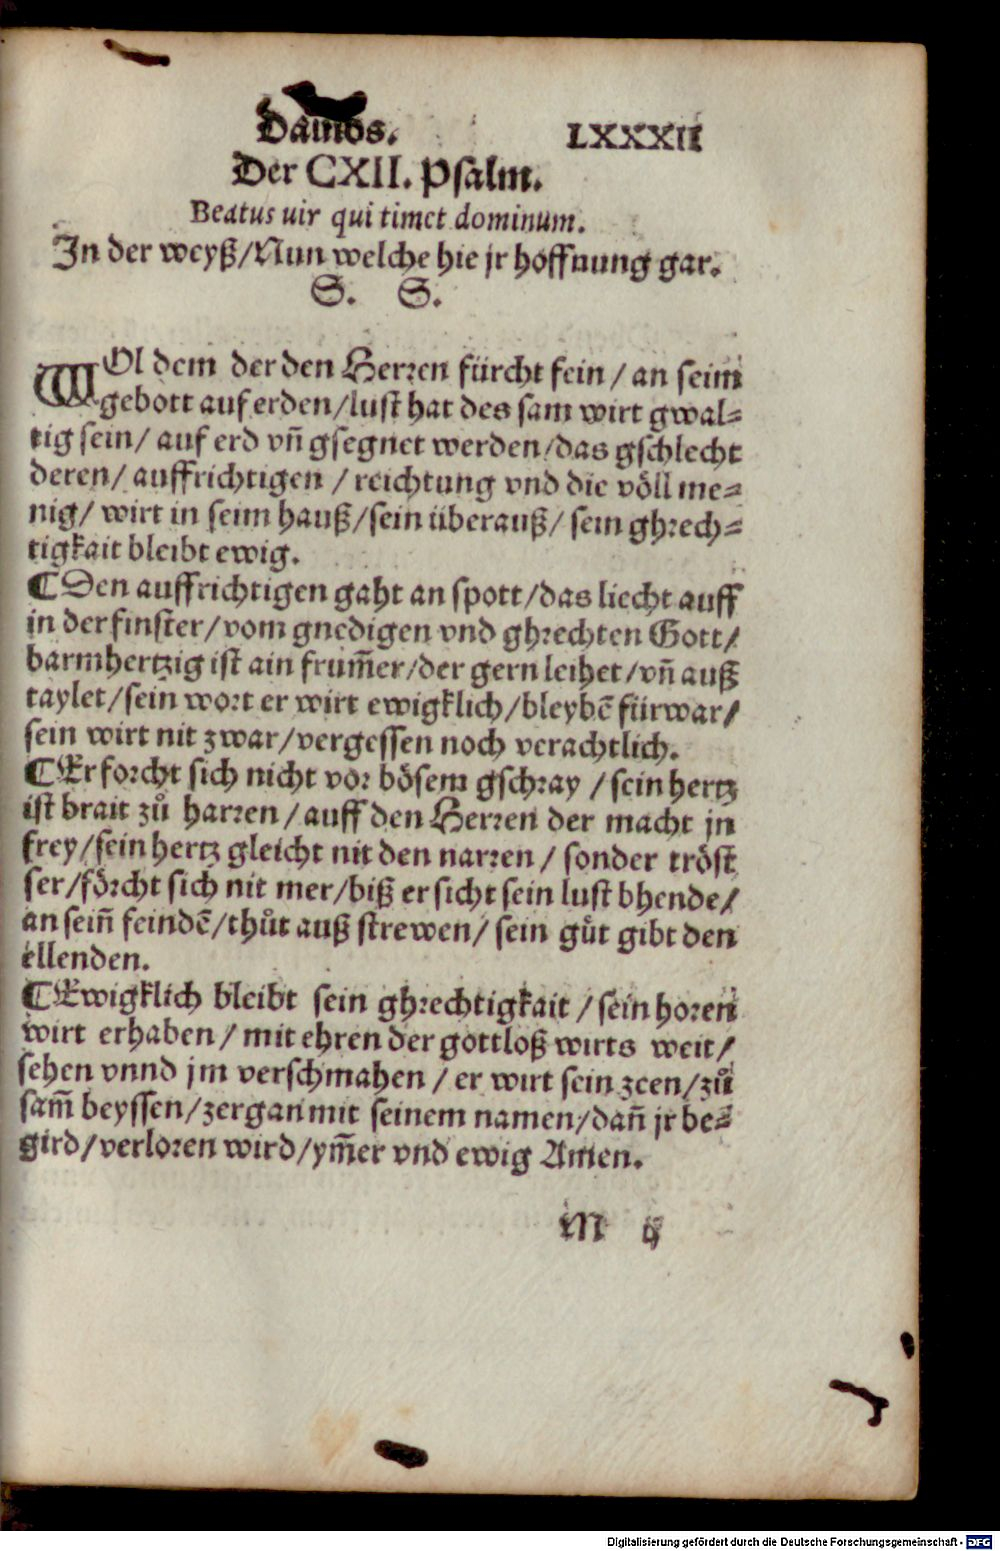 Dauids. LXXXII
Der CXII. Psalm.
Beatus uir qui timet dominum.
In der weyß/Nun welche hie jr hoffnung gar.
S. S.
WOl dem der den Herren fürcht fein / an seim
gebott auf erden/lust hat des sam wirt gwal⸗
tig sein/ auf erd vñ gsegnet werden/das gschlecht
deren/ auffrichtigen / reichtung vnd die völl me⸗
nig/ wirt in seim hauß/sein überauß/ sein ghrech⸗
tigkait bleibt ewig.
¶Den auffrichtigen gaht an spott/das liecht auff
in der finster/vom gnedigen vnd ghrechten Gott/
barmhertzig ist ain frum̃er/der gern leihet/vñ auß
taylet/sein wort er wirt ewigklich/bleybẽ fürwar/
sein wirt nit zwar/vergessen noch verachtlich.
¶Er forcht sich nicht vor bösem gschray / sein hertz
ist brait zů harren / auff den Herren der macht jn
frey/sein hertz gleicht nit den narren / sonder tröst
ser/förcht sich nit mer/biß er sicht sein lust bhende/
an seiñ feindẽ/thůt auß strewen/ sein gůt gibt den
ellenden.
¶Ewigklich bleibt sein ghrechtigkait / sein horen
wirt erhaben / mit ehren der gottloß wirts weit/
sehen vnnd jm verschmahen / er wirt sein zeen/zů
sam̃ beyssen/zergan mit seinem namen/dañ jr be⸗
gird/verloren wird/ym̃er vnd ewig Amen.
M ij
Digitalisierung gefördert durch die Deutsche Forschungsgemeinschaft - DFG